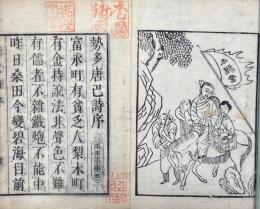 勢多唐巴詩序
富永町有貧乏人梨木町
有金持說法非聲色不難
有儒者不雜鐵炮不能車
昨日桑田今變碧海目前